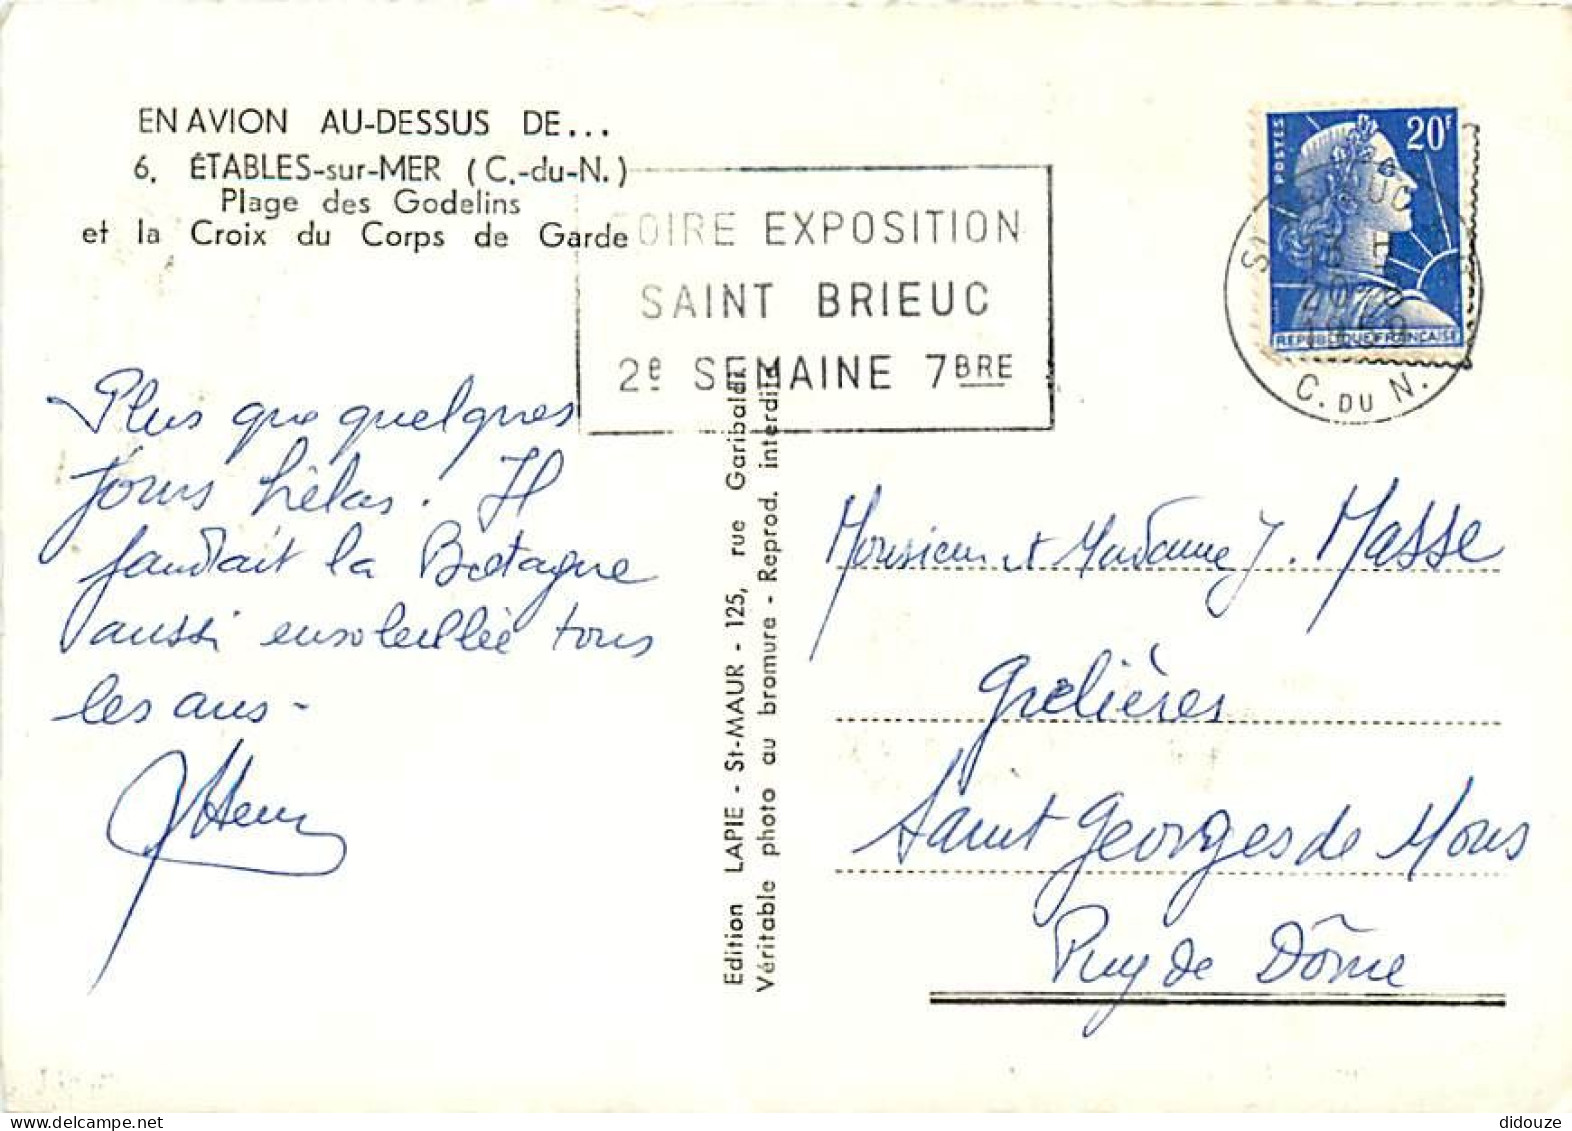 EN AVION AU-DESSUS DE...
6. ÉTABLES-sur-MER (C.-du-N.)
Plage des Godelins
et la Croix du Corps de Garde
FOIRE EXPOSITION
SAINT BRIEUC
2e SEMAINE 7BRE
POSTES
20F
REPUBLIQUE FRANÇAISE
ST BRIEUC
13 H
20 - 8
1959
C. DU N.
Plus que quelques
jours hélas. Il
faudrait la Bretagne
aussi ensoleillée tous
les ans -
Edition LAPIE - St-MAUR - 125, rue Garibaldi
Véritable photo au bromure - Reprod. interdite
Monsieur et Madame J. Masse
Grelières
Saint Georges de Mons
Puy de Dôme
didouze